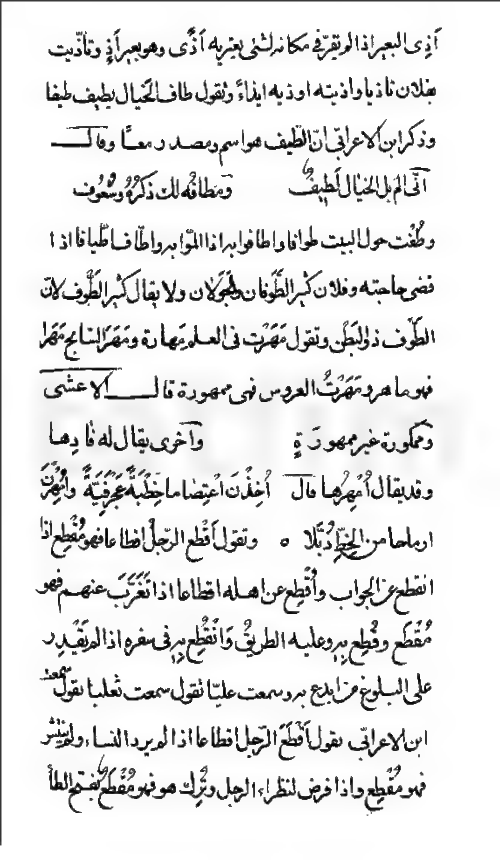 أذي البعير اذا لم يقرّ في مكانه لشئ يعتريه أذًى وهو بعير أذٍ وتأذّيت
بفلان تاذيا واذيته اوذيه ايذاءً وتقول طاف الخَيال يطيف طيفا
وذكر ابن الاعرابيّ انّ الطيف هو اسم ومصدر معًا وقال
أنّى المّ بك الخيَال يَطيفُ ومطافُه لك ذكرَةٌ وشُعُوف
وطُفْت حول البيت طوافا واطافوا به اذا المّوا به واطّاف اطّيافا اذا
قضى حاجته وفلان كثير الطَّوفان والجَوَلان ولا يقال كثير الطَّوف لانّ
الطَّوْف ذو البَطْن وتقول مَهَرْت في العلم مِهارة ومَهَرَ السّابح مَهَرا
فهو ماهر ومَهَرْتُ العروس فهى ممهورة قال الاعشى
وممكورة غير ممهورَةٍ وأخرى يقال له فادِها
وقد يقال أمْهِرُها قال أُخِذْنَ اغتصابا خِطْبَةً عَجْرَفِيّةً وأُمْهِرْنَ
ارماحا من الخطّ ذُبَّلا ه وتقول أقْطَع الرّجلُ اقطاعا فهو مُقْطِع اذا
انقطع عن الجواب وأُقْطِع عن اهله اقطاعا اذا تَغَرَّبَ عنهم فهو
مُقْطَع وقُطِع بِه وعليه الطريقُ وانْقُطِع بِه في سفره اذا لم يَقْدِر
على البلوغ من ابدع به وسمعت عليّا تقول سمعت ثعلبا تقول سمعت
ابن الاعرابّى يقول أقْطَعَ الرّجل اقطاعا اذا لم يرد النساء ولم ينتشر
فهو مُقْطِع واذا فرض لنظراء الرجل وتُرِك هو فهو مُقْطَع بفتح الطا